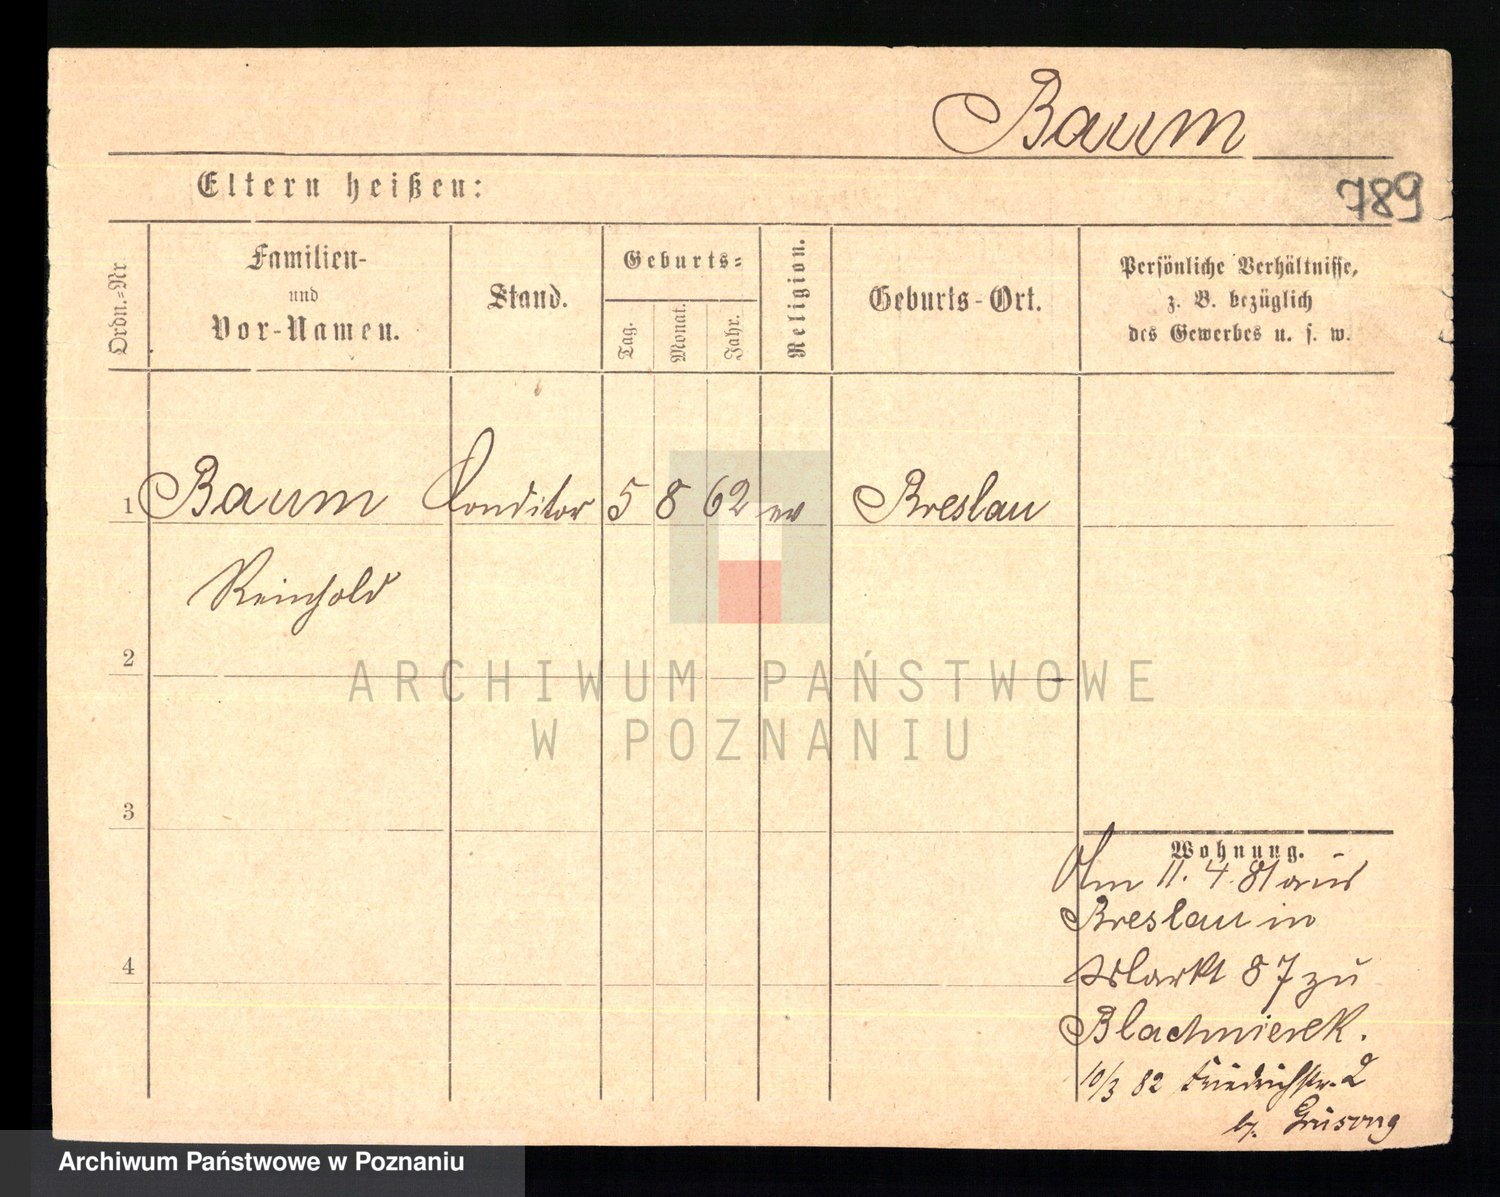 Baum
Eltern heißen:
789
Ordn.=Nr
Familien-
und
Vor-Namen.
Stand.
Geburts=
Tag.
Monat.
Jahr.
Religion.
Geburts-Ort.
Persönliche Verhältnisse,
z. B. bezüglich
des Gewerbes u. s. w.
1 Baum Conditor 5 8 62 ev Breslau
Reinhold
2
3
4
Wohnung.
Am 11. 4. 81 aus
Breslau in
Markt 87 zu
Blachnierek.
10/3 82 Friedrichstr. 2
b.
ARCHIWUM PAŃSTWOWE
W POZNANIU
Archiwum Państwowe w Poznaniu